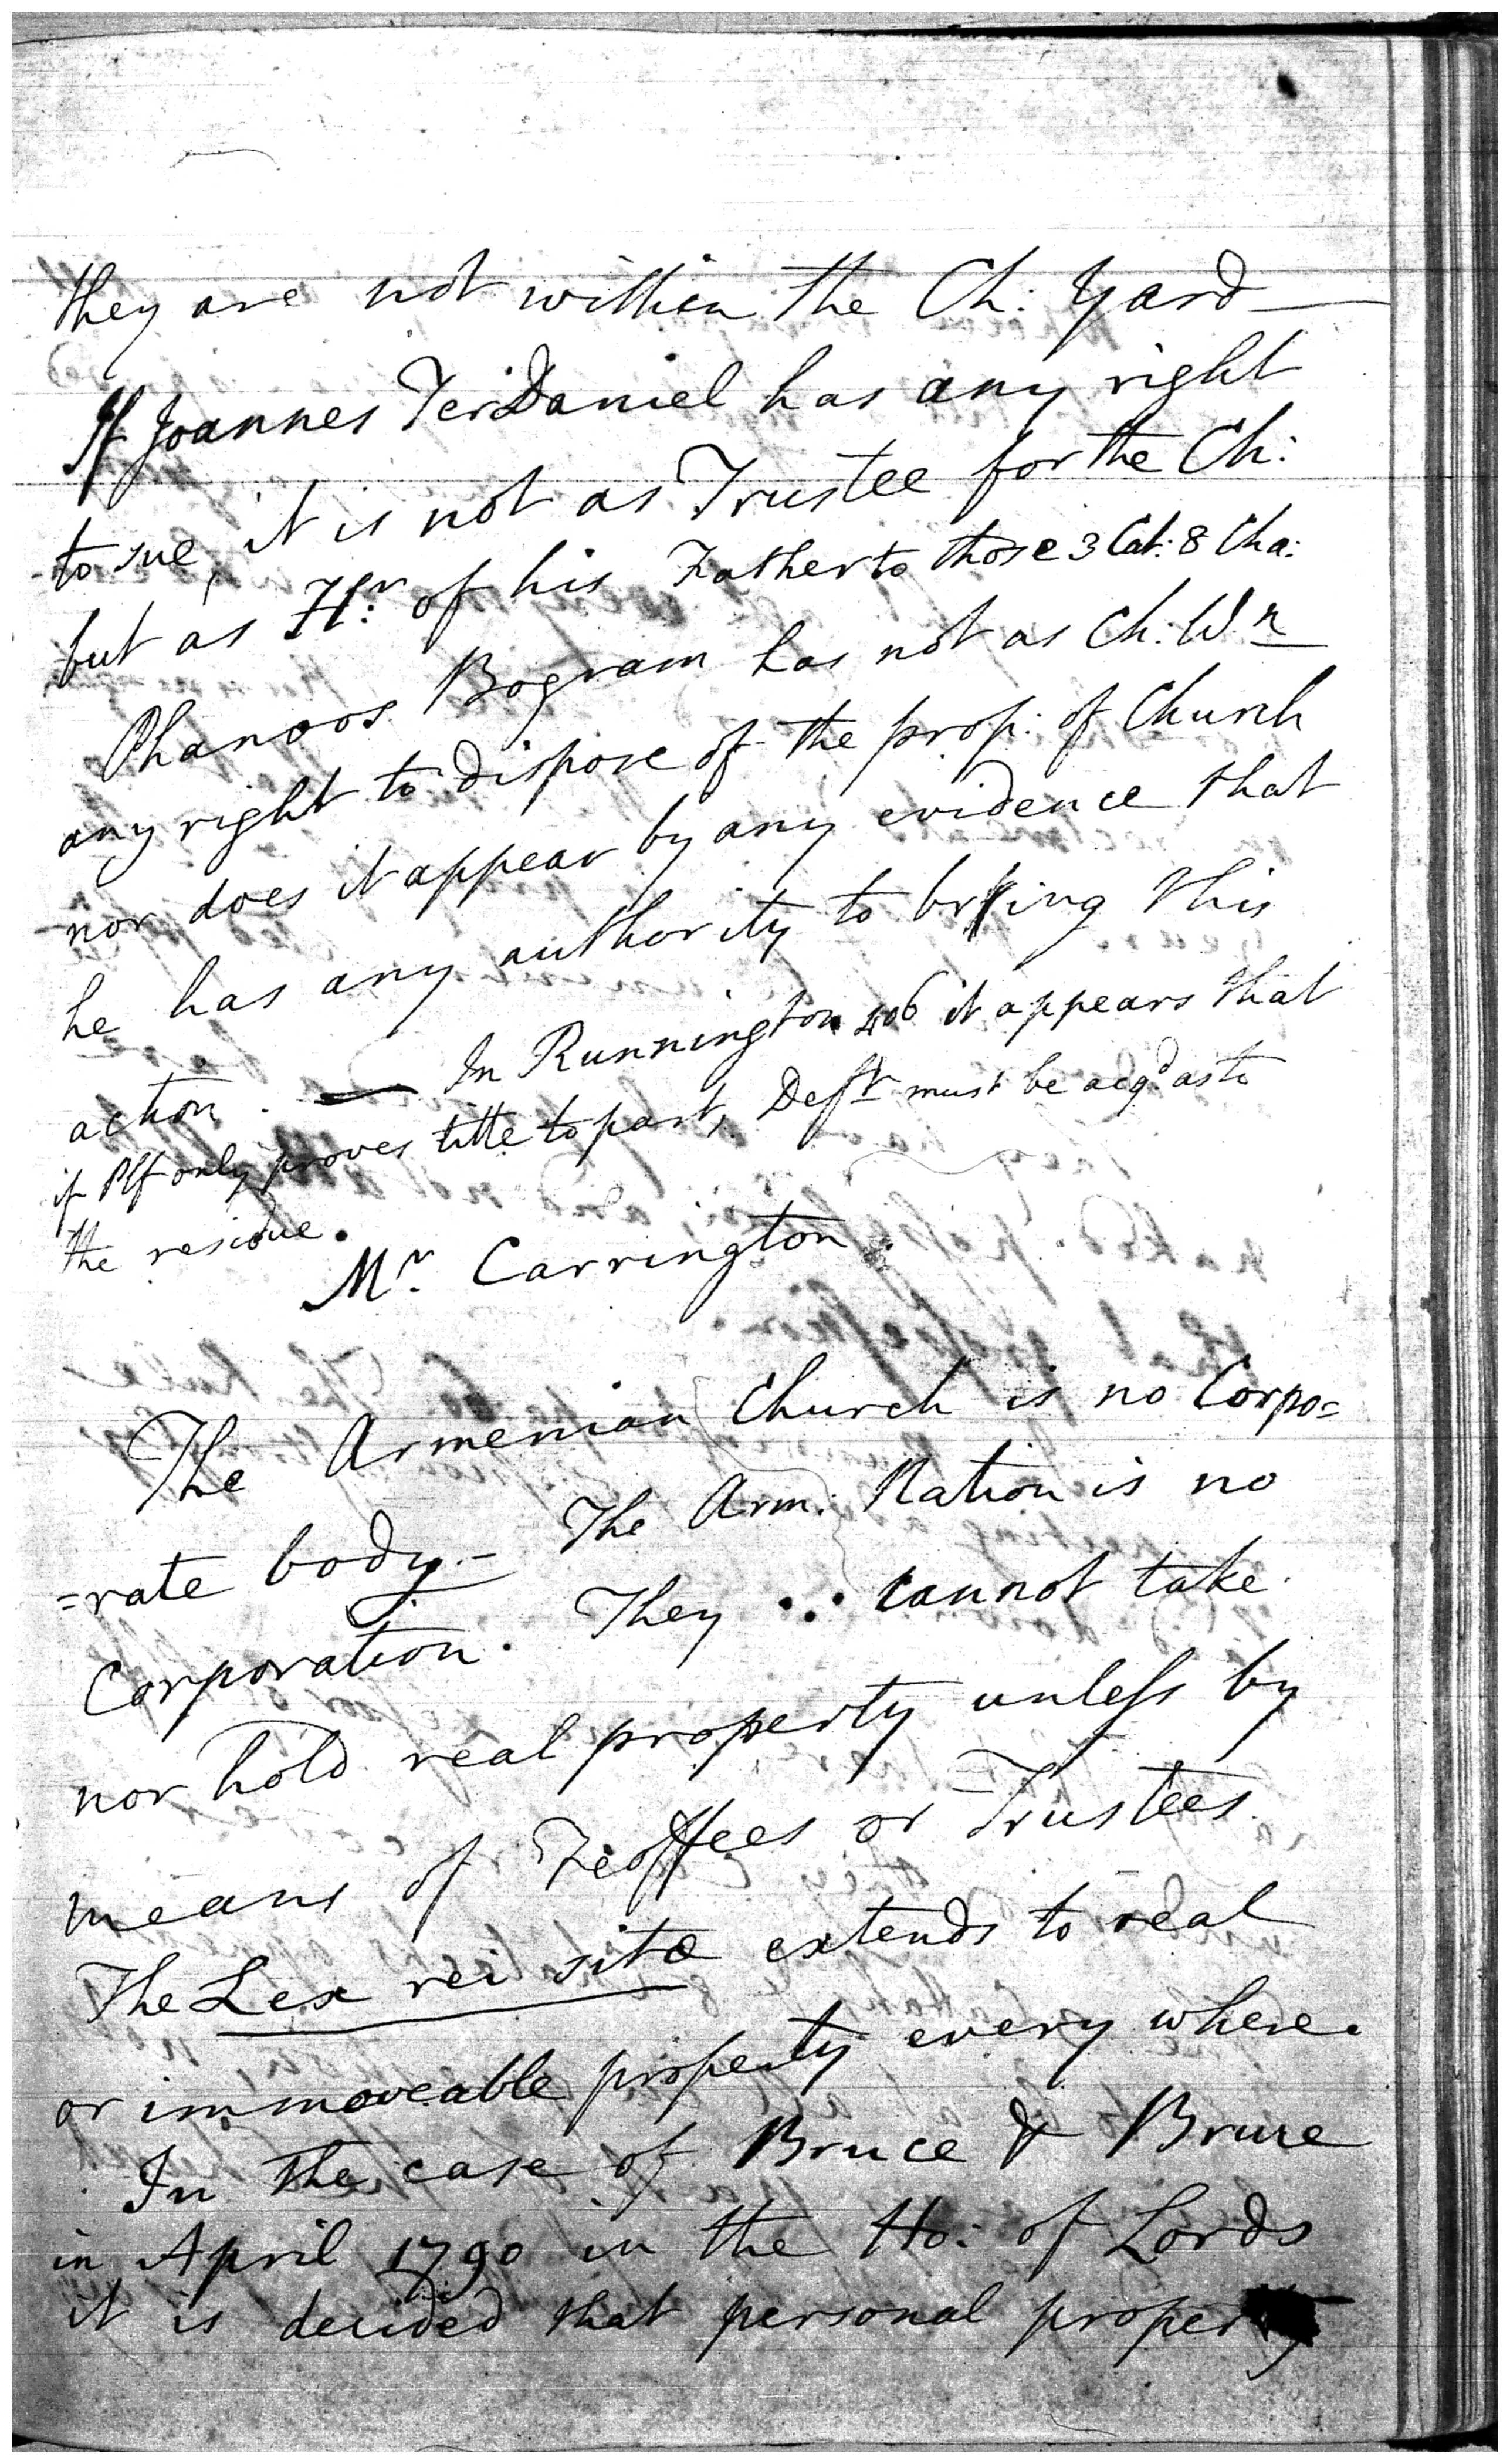 they are not within the Ch: Yard —
If Joannes Ter Daniel has any right
to sue, it is not as Trustee for the Ch:
but as Hr. of his Father to those 3 Cot: 8 Cha:
Phanoos Bogram has not as Ch: Wn
any right to dispose of the prop: of Church
nor does it appear by any evidence that
he has any authority to bring this
action. — In Runnington 406 it appears that
if Plf only proves title to part, Deft must be acqd as to
the residue.
Mr. Carrington.
The Armenian Church is no Corpo=
=rate body.— The Arm: Nation is no
Corporation. They ∴ cannot take
nor hold real property unless by
means of Feoffees or Trustees.
The Lex rei sitæ extends to real
or immoveable property every where.
In the case of Bruce & Bruce
in April 1790 in the Ho: of Lords
it is decided that personal property